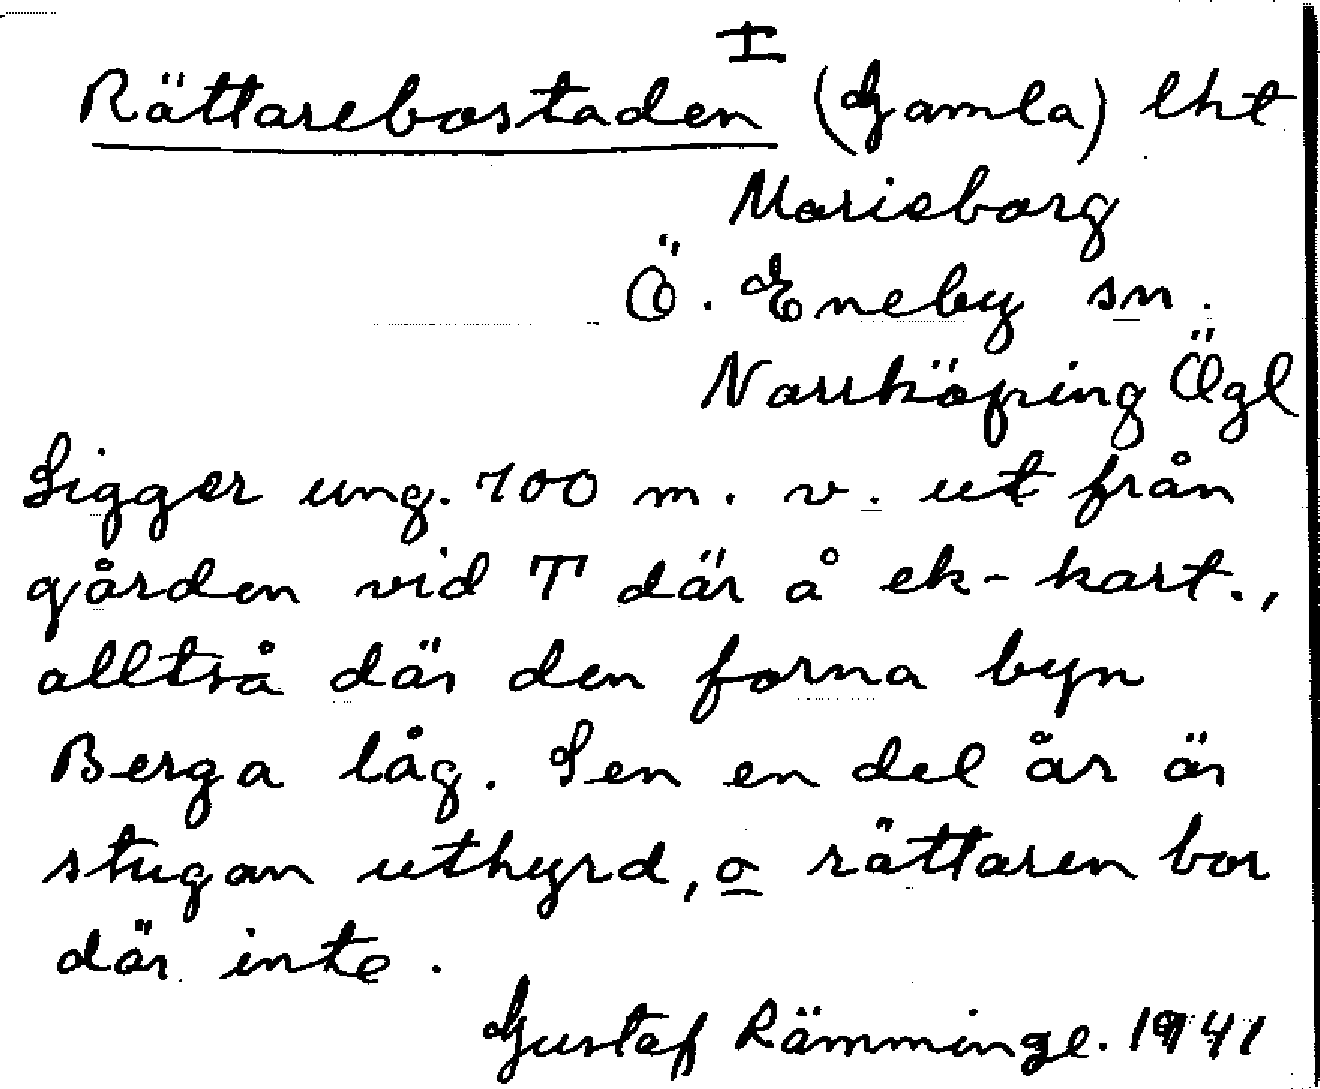 I
Rättarebostaden (Gamla) lht
Marieborg
Ö. Eneby sn.
Norrköping Ögl
Ligger ung. 700 m. v. ut från
gården vid T där å ek-kart.,
alltså där den forna byn
Berga låg. Sen en del år är
stugan uthyrd, o rättaren bor
där inte.
Gustaf Rämminge. 1941